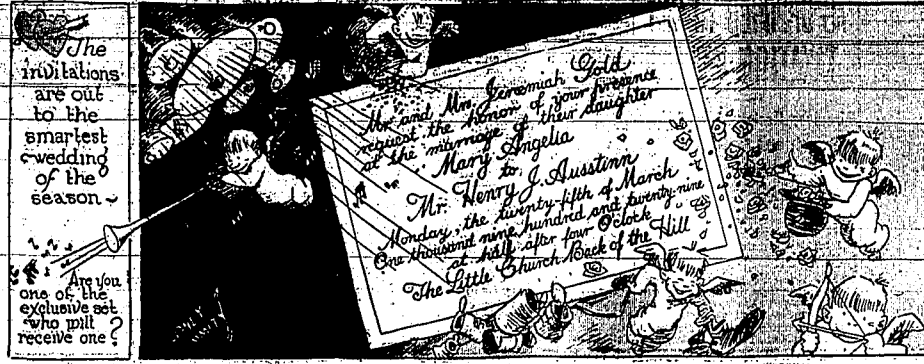 The
invitations
are out
to the
smartest
wedding
of the
season ~
Are you
one of the
exclusive set
who will
receive one?
Mr. and Mrs. Jeremiah Gold
request the honor of your presence
at the marriage of their daughter
Mary Angelia
to
Mr. Henry J. Ausstinn
Monday, the twenty-fifth of March
One thousand nine hundred and twenty-nine
at half after four O'clock
The Little Church Back of the Hill